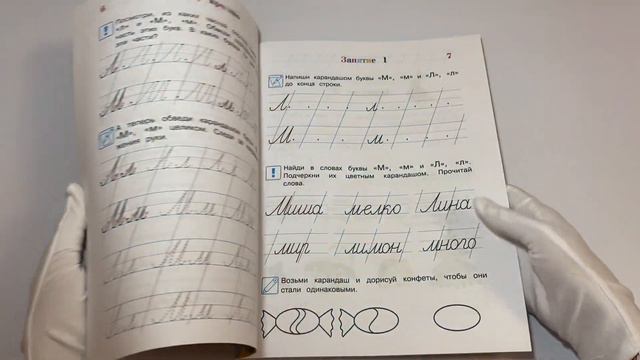 Посмотри, из каких
«Л» и «М», «м».
часть этих букв. В каких
эти части?
А теперь обведи карандашом
«М», «м» целиком. Следи за
жения руки.
Занятие 1
7
Напиши карандашом буквы «М», «м» и «Л», «л»
до конца строки.
Л л
М м
Найди в словах буквы «М», «м» и «Л», «л».
Подчеркни их цветным карандашом. Прочитай
слова.
Миша мелко Лина
мир лимон много
Возьми карандаш и дорисуй конфеты, чтобы они
стали одинаковыми.